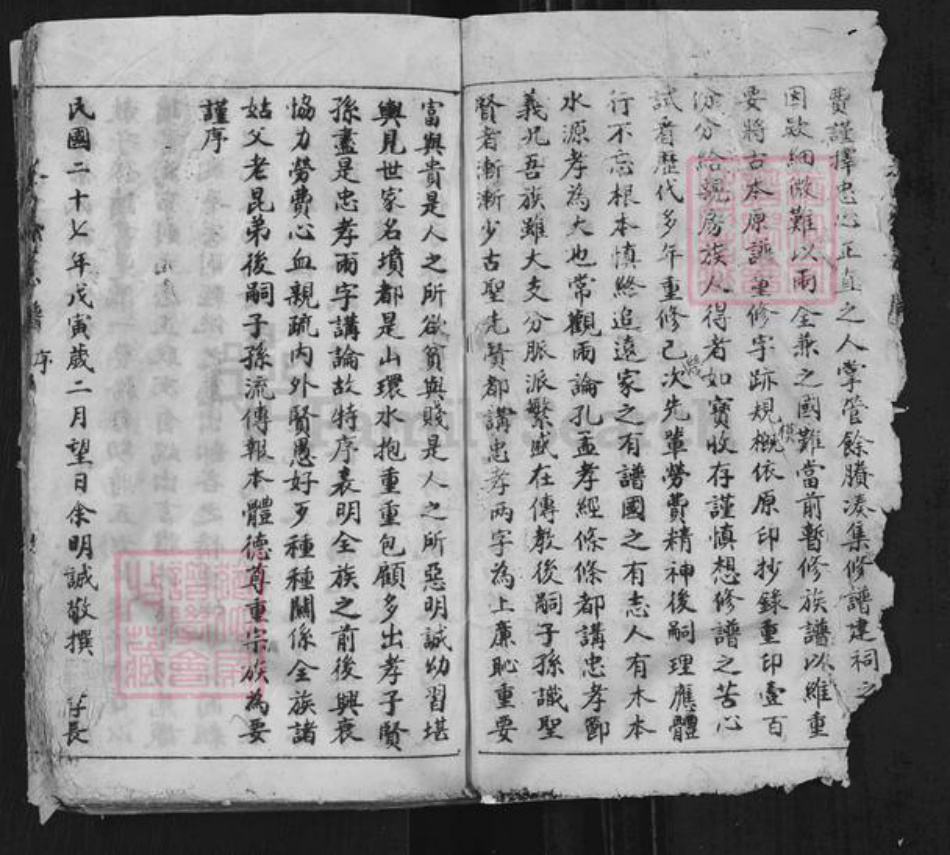 費謹擇忠心正直之人掌管餘賸湊集修譜建祠之
因欵細微難以兩全兼之國難當前暫修族譜以維重
要將古本原譜重修字跡規模概依原印抄錄重印壹百
份分給親房族人得者如寶收存謹慎想修譜之苦心
試看歷代多年重修已經次先輩勞費精神後嗣理應體
行不忘根本慎終追遠家之有譜國之有志人有木本
水源孝為大也常觀兩論孔孟孝經條條都講忠孝節
義凡吾族雖大支分脈派繁盛在傳教後嗣子孫識聖
賢者漸漸少古聖先賢都講忠孝兩字為上廉恥重要
富與貴是人之所欲貧與賤是人之所惡明誠幼習堪
輿見世家名墳都是山環水抱重重包顧多出孝子賢
孫盡是忠孝兩字講論故特序表明全族之前後興衰
恊力勞費心血親疏內外賢愚好歹種種關係全族諸
姑父老昆弟後嗣子孫流傳報本體德尊重宗族為要
謹序
民國二十七年戊寅歲二月望日余明誠敬撰
序
FamilySearch